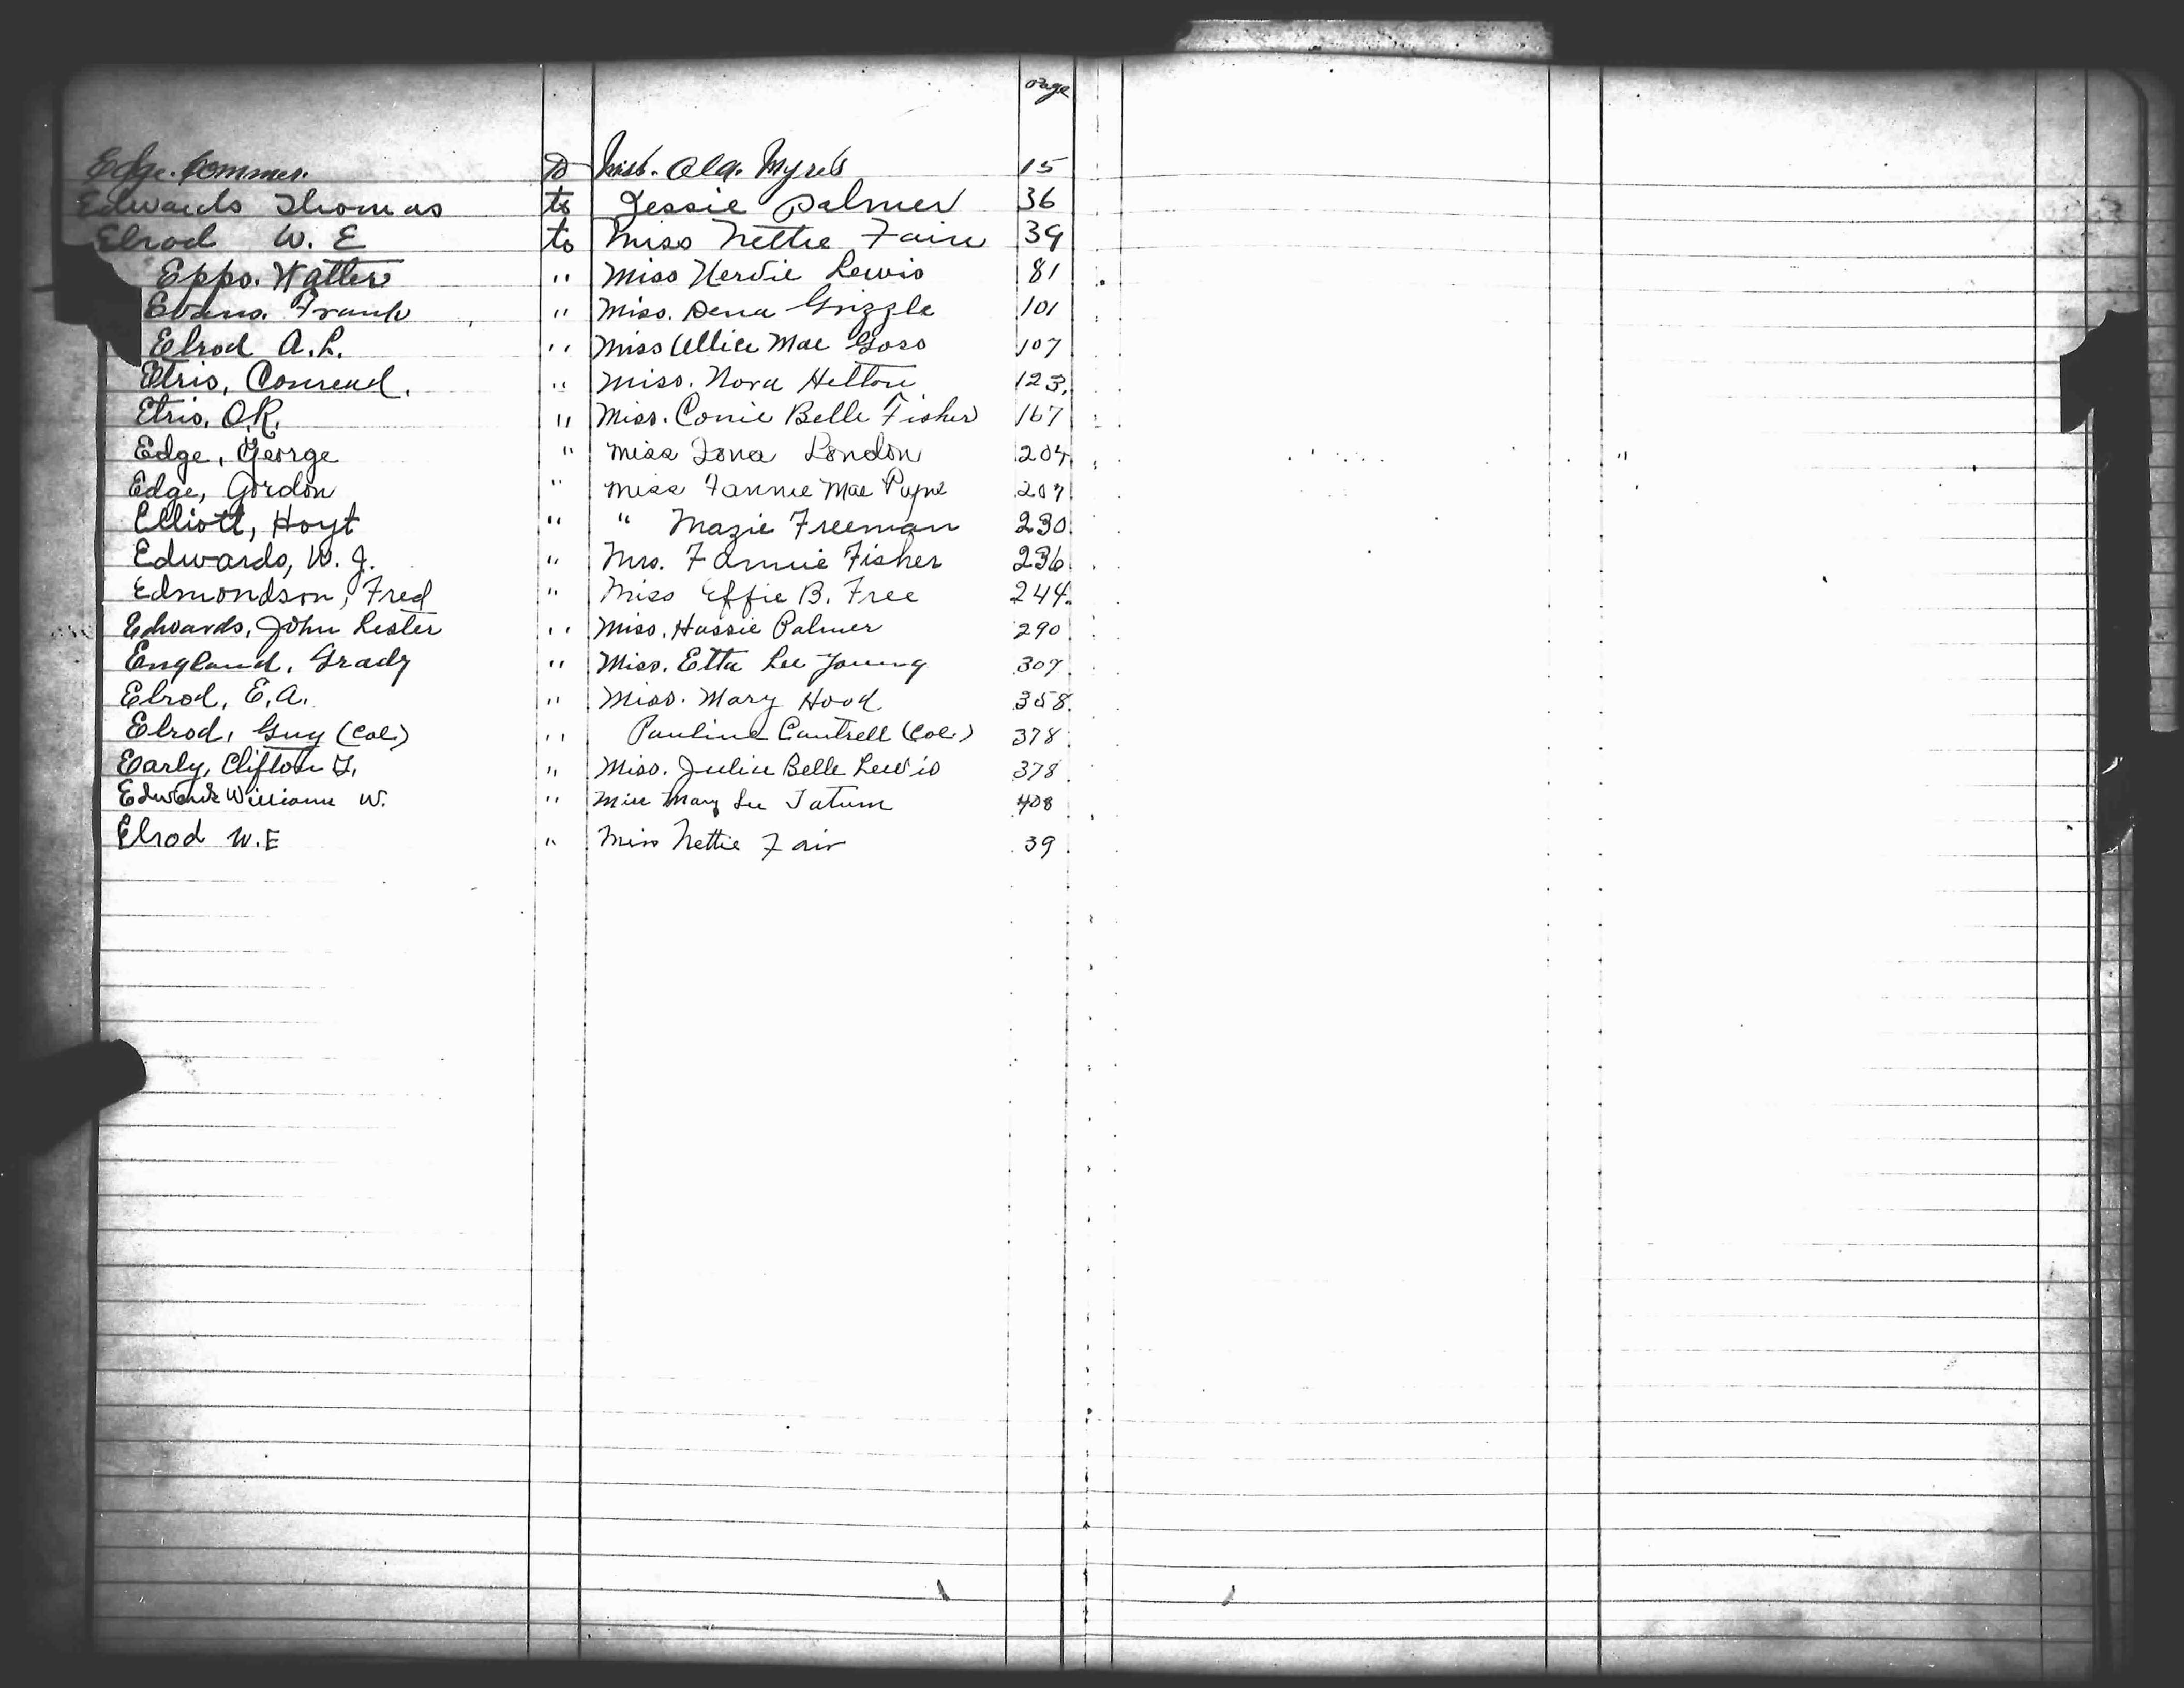 Page
Edge. Commer. to Miss. Ola. Myres 15
Edwards Thomas to Jessie Palmer 36
Elrod W. E to Miss Nettie Fain 39
Epps. Walter " Miss Nervie Lewis 81
Evans. Frank " Miss. Dena Grizzle 101
Elrod A. L. " Miss Allice Mae Goss 107
Etris, Conread. " Miss. Nora Helton 123.
Etris, O.R. " Miss. Conie Belle Fisher 167
Edge, George " Miss Iona London 204
Edge, Gordon " Miss Fannie Mae 207
Elliott, Hoyt " " Mazie Freeman 230
Edwards, W. J. " Mrs. Fannie Fisher 236
Edmondson, Fred " Miss Effie B. Free 244.
Edwards, John Lester " Miss. Hassie Palmer 290
England, Grady " Miss. Etta Lee Young 307
Elrod, E. A. " Miss. Mary Hood 358.
Elrod, Guy (Col) " Pauline Cantrell (Col.) 378
Early, Clifton " Miss. Julia Belle Lewis 378
Edwards William W. " Miss Mary Lee Tatum 408
Elrod W. E " Miss Nettie Fair 39
"